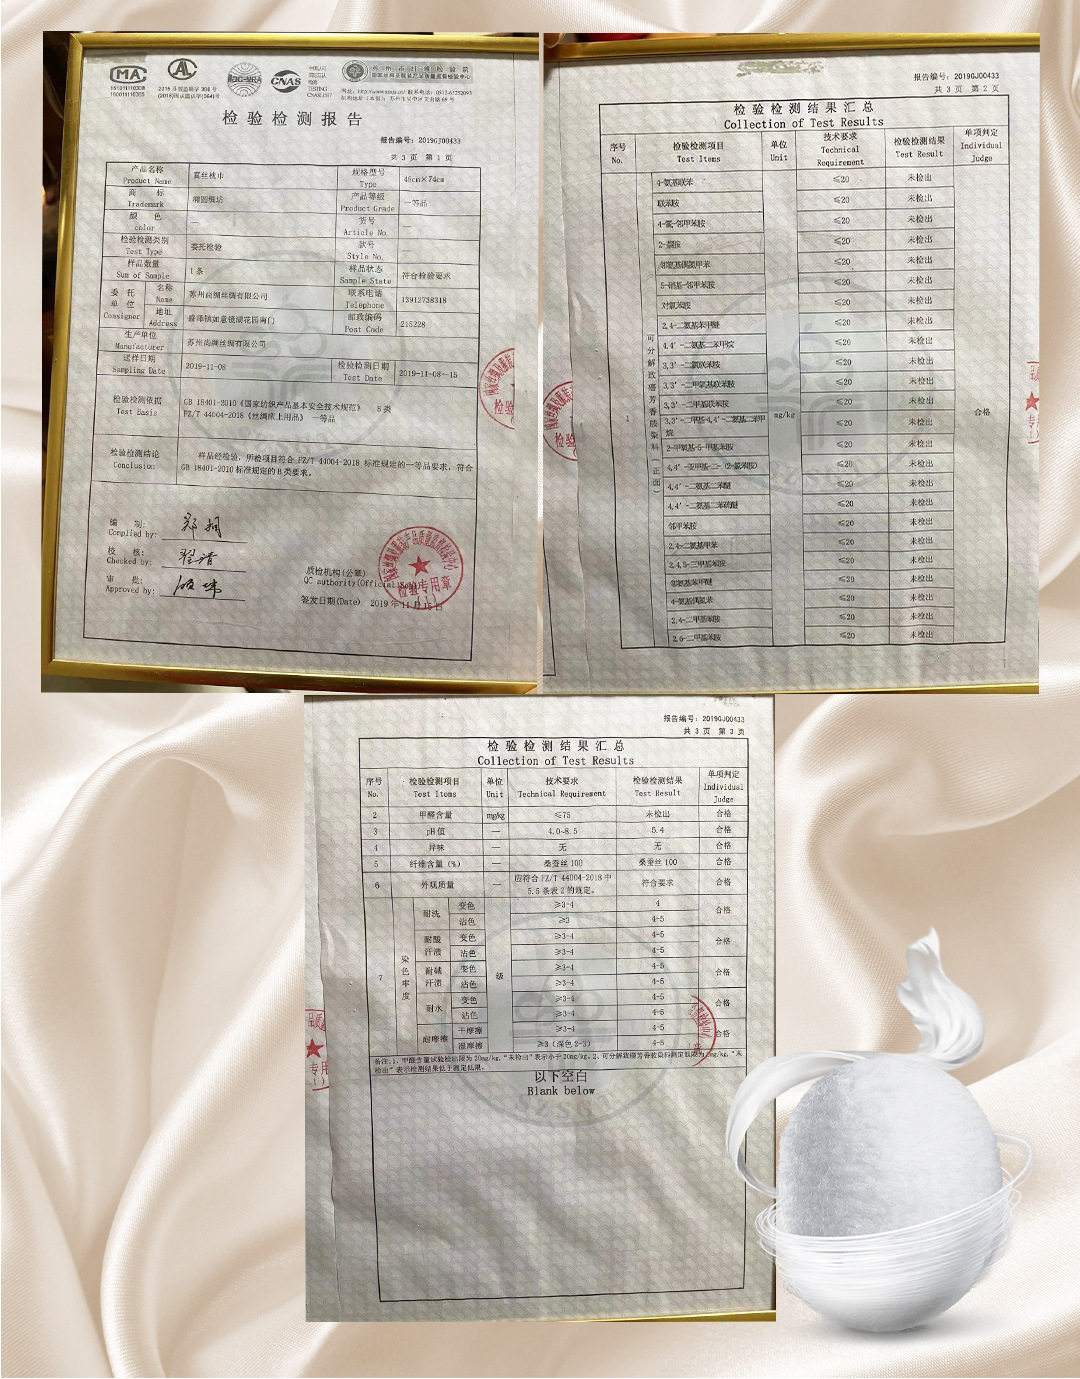 MA
151011110308
150011110305
AL
2015 苏质监验字 308 号
(2018)国认监认字(364)号
ilac-MRA
CNAS
中国认可
国际互认
检测
TESTING
CNAS L1317
苏州市纤维检验院
国家丝绸及服装产品质量监督检验中心
检验检测报告
报告编号: 2019GJ00433
共 3 页 第 1 页
产品名称 Product Name 真丝枕巾 规格型号 Type 48cm×74cm
商标 Trademark 椭圆蚕坊 产品等级 Product Grade 一等品
颜色 color — 货号 Article No. —
检验检测类别 Test Type 委托检验 款号 Style No. —
样品数量 Sum of Sample 1 条 样品状态 Sample State 符合检验要求
委托单位 Consigner 名称 Name 苏州尚绸丝绸有限公司 联系电话 Telephone 13912738318
地址 Address 盛泽镇如意镜湖花园南门 邮政编码 Post Code 215228
生产单位 Manufacturer 苏州尚绸丝绸有限公司
送样日期 Sampling Date 2019-11-08 检验检测日期 Test Date 2019-11-08~15
检验检测依据 Test Basis GB 18401-2010《国家纺织产品基本安全技术规范》 B 类
FZ/T 44004-2018《丝绸床上用品》 一等品
检验检测结论 Conclusion 样品经检验，所检项目符合 FZ/T 44004-2018 标准规定的一等品要求，符合
GB 18401-2010 标准规定的 B 类要求。
编 制:
Complied by:
校 核:
Checked by:
审 批:
Approved by:
质检机构(公章)
QC authority(Official Seal)
签发日期(Date) 2019 年 11 月 15 日
检验专用章
(1)
报告编号: 2019GJ00433
共 3 页 第 2 页
检验检测结果汇总
Collection of Test Results
序号 No. 检验检测项目 Test Items 单位 Unit 技术要求 Technical Requirement 检验检测结果 Test Result 单项判定 Individual Judge
1 可分解致癌芳香胺染料（正面） mg/kg 合格
4-氨基联苯 ≤20 未检出
联苯胺 ≤20 未检出
4-氯-邻甲苯胺 ≤20 未检出
2-萘胺 ≤20 未检出
邻氨基偶氮甲苯 ≤20 未检出
5-硝基-邻甲苯胺 ≤20 未检出
对氯苯胺 ≤20 未检出
2,4-二氨基苯甲醚 ≤20 未检出
4,4'-二氨基二苯甲烷 ≤20 未检出
3,3'-二氯联苯胺 ≤20 未检出
3,3'-二甲氧基联苯胺 ≤20 未检出
3,3'-二甲基联苯胺 ≤20 未检出
3,3'-二甲基-4,4'-二氨基二苯甲烷 ≤20 未检出
2-甲氧基-5-甲基苯胺 ≤20 未检出
4,4'-亚甲基-二-(2-氯苯胺) ≤20 未检出
4,4'-二氨基二苯醚 ≤20 未检出
4,4'-二氨基二苯硫醚 ≤20 未检出
邻甲苯胺 ≤20 未检出
2,4-二氨基甲苯 ≤20 未检出
2,4,5-三甲基苯胺 ≤20 未检出
邻氨基苯甲醚 ≤20 未检出
4-氨基偶氮苯 ≤20 未检出
2,4-二甲基苯胺 ≤20 未检出
2,6-二甲基苯胺 ≤20 未检出
报告编号: 2019GJ00433
共 3 页 第 3 页
检验检测结果汇总
Collection of Test Results
序号 No. 检验检测项目 Test Items 单位 Unit 技术要求 Technical Requirement 检验检测结果 Test Result 单项判定 Individual Judge
2 甲醛含量 mg/kg ≤75 未检出 合格
3 pH 值 — 4.0~8.5 5.4 合格
4 异味 — 无 无 合格
5 纤维含量 (%) — 桑蚕丝 100 桑蚕丝 100 合格
6 外观质量 — 应符合 FZ/T 44004-2018 中 5.5 条表 2 的规定。 符合要求 合格
7 染色牢度 级
耐洗 变色 ≥3-4 4 合格
沾色 ≥3 4-5
耐酸汗渍 变色 ≥3-4 4-5 合格
沾色 ≥3-4 4-5
耐碱汗渍 变色 ≥3-4 4-5 合格
沾色 ≥3-4 4-5
耐水 变色 ≥3-4 4-5 合格
沾色 ≥3-4 4-5
耐摩擦 干摩擦 ≥3-4 4-5 合格
湿摩擦 ≥3 (深色 2-3) 4-5
备注:1、甲醛含量试验检出限为 20mg/kg,"未检出"表示小于 20mg/kg。2、可分解致癌芳香胺染料测定低限为 5mg/kg,"未
检出"表示检测结果低于测定低限。
以下空白
Blank below